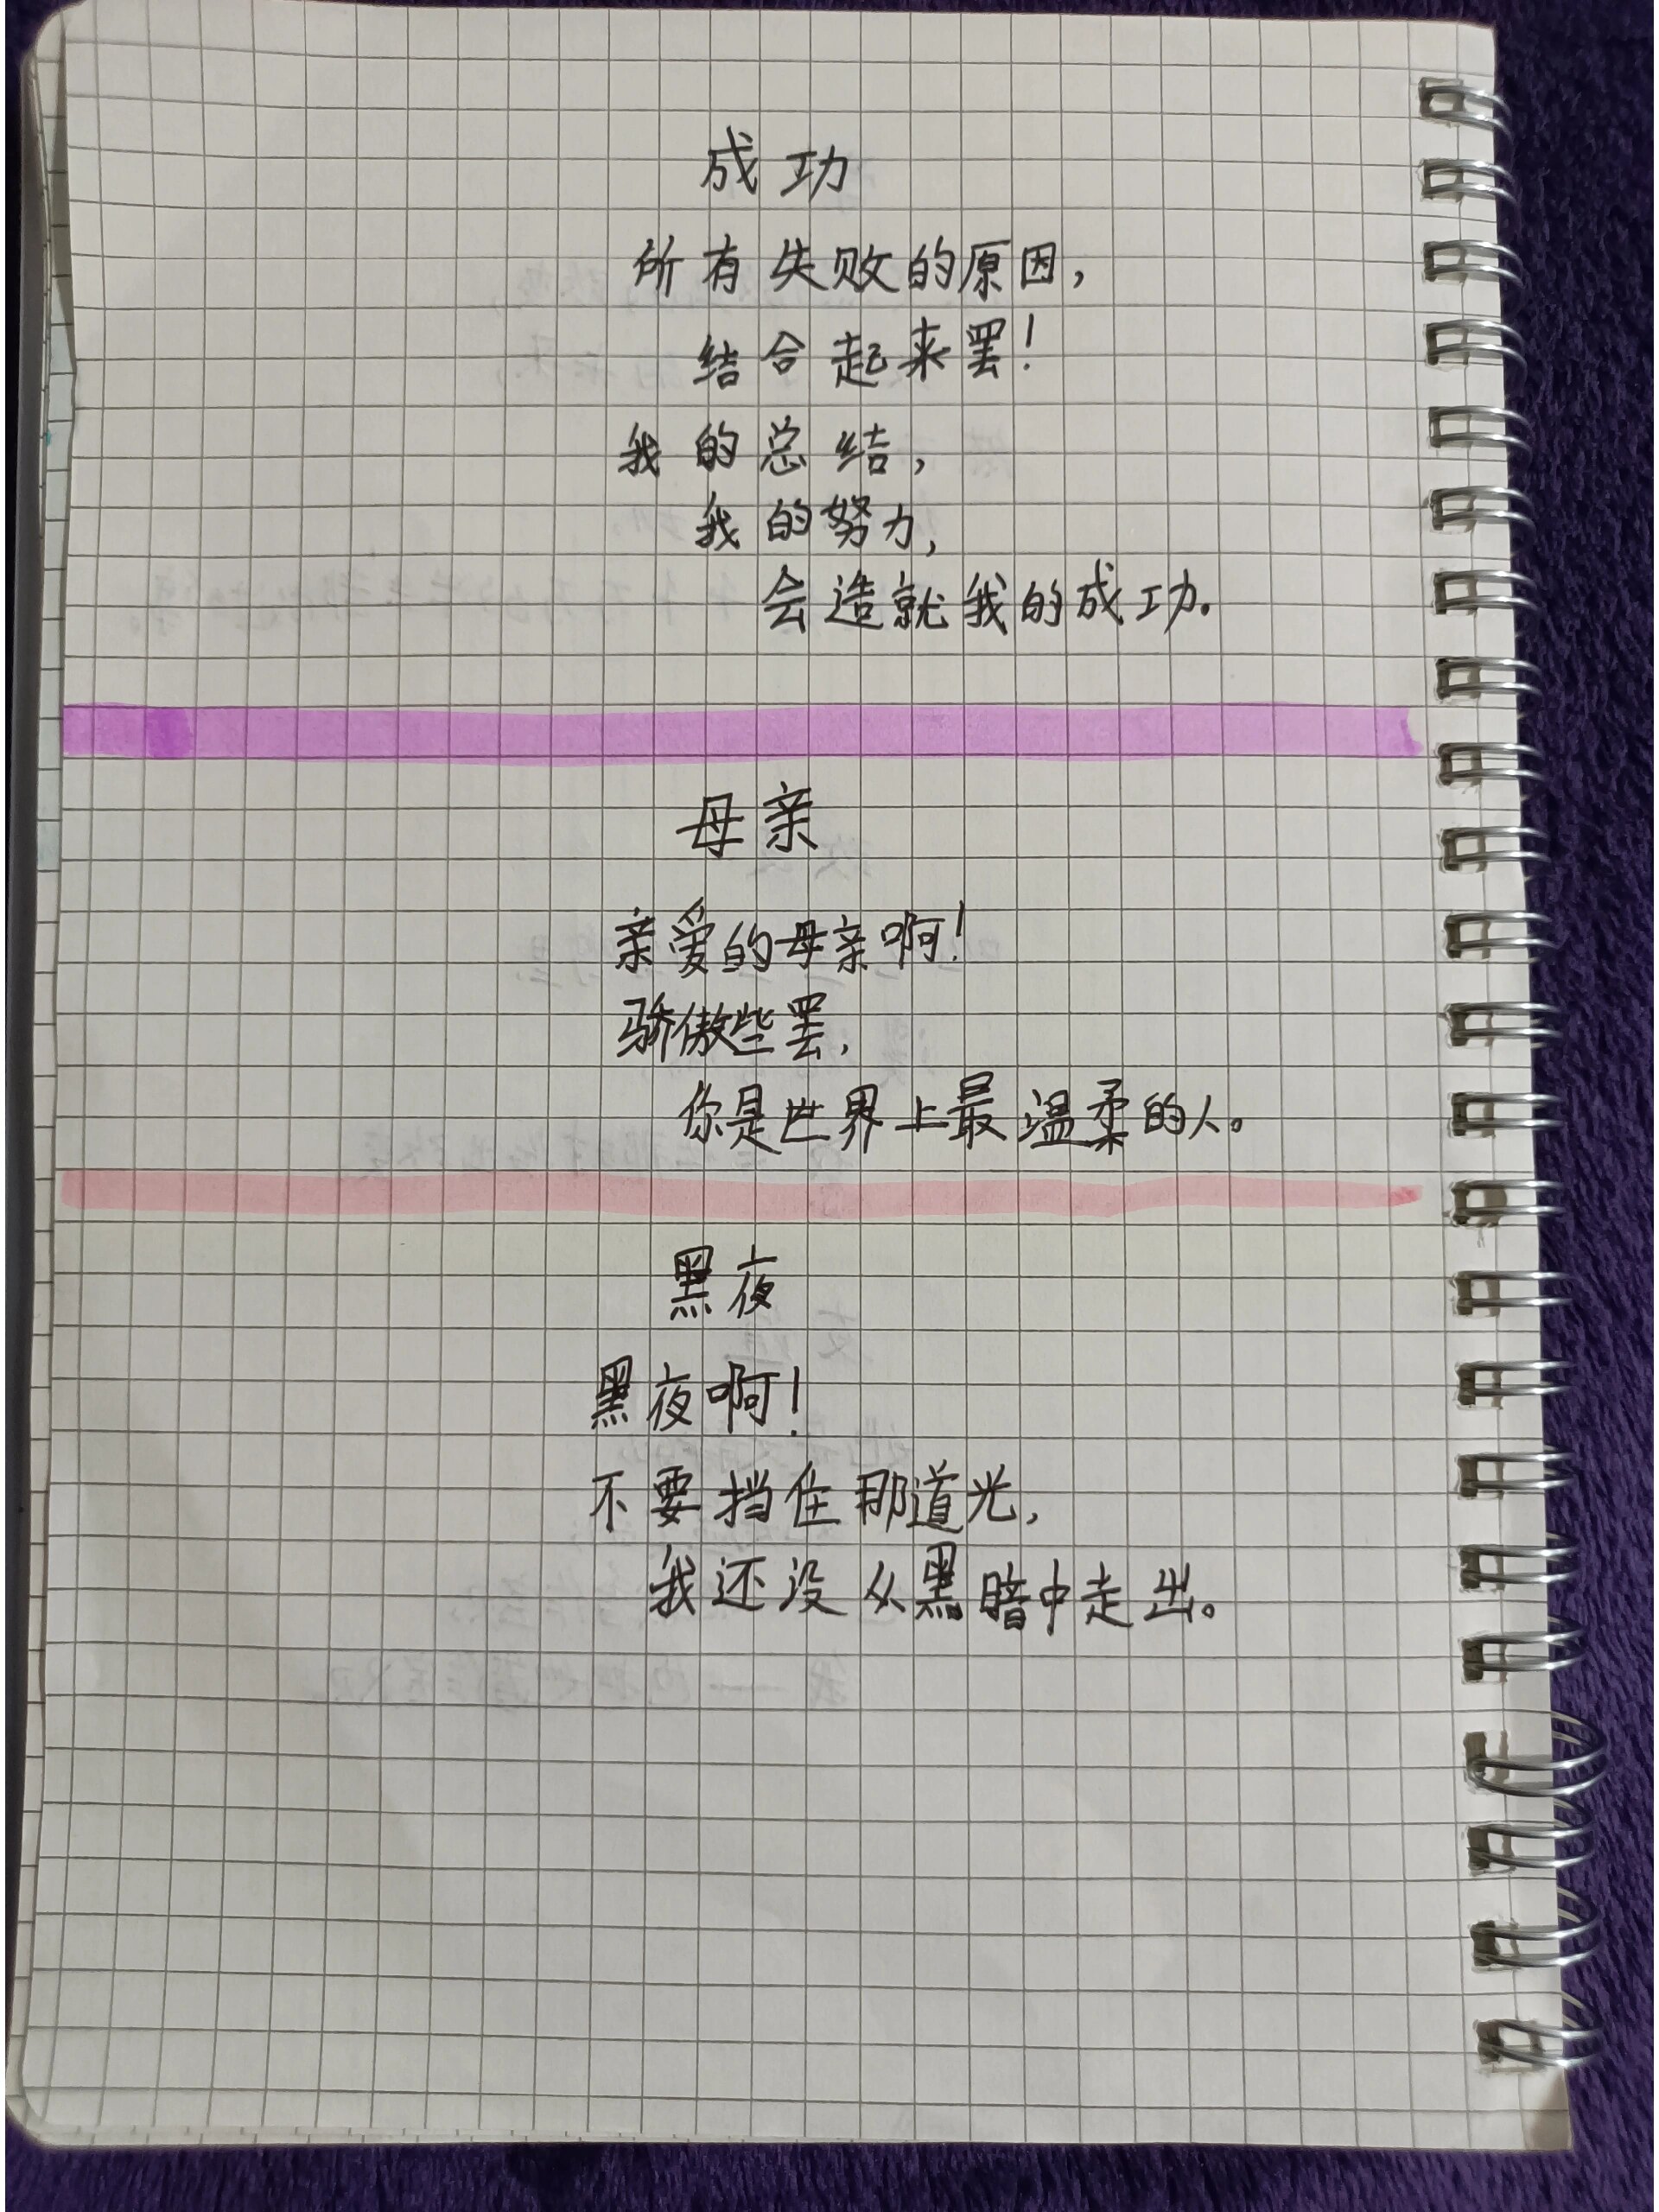 成功
所有失败的原因，
结合起来罢！
我的总结，
我的努力，
会造就我的成功。
母亲
亲爱的母亲啊！
骄傲些罢，
你是世界上最温柔的人。
黑夜
黑夜啊！
不要挡住那道光，
我还没从黑暗中走出。